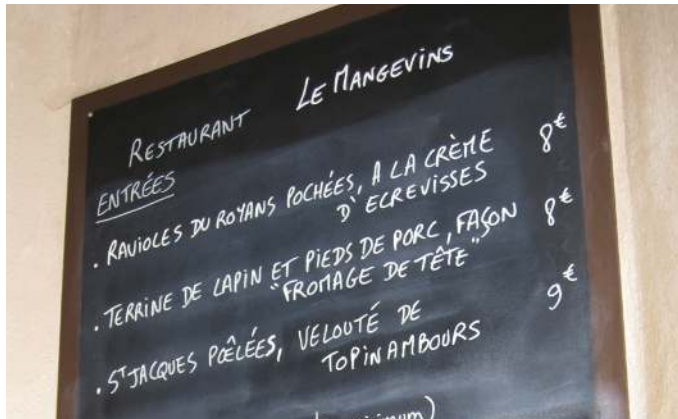 RESTAURANT LE MANGEVINS
ENTRÉES
. RAVIOLES DU ROYANS POCHÉES, A LA CRÈME 8€
D'ECREVISSES
. TERRINE DE LAPIN ET PIEDS DE PORC, FAÇON 8€
"FROMAGE DE TÊTE"
. ST JACQUES POÊLÉES, VELOUTÉ DE 9€
TOPINAMBOURS